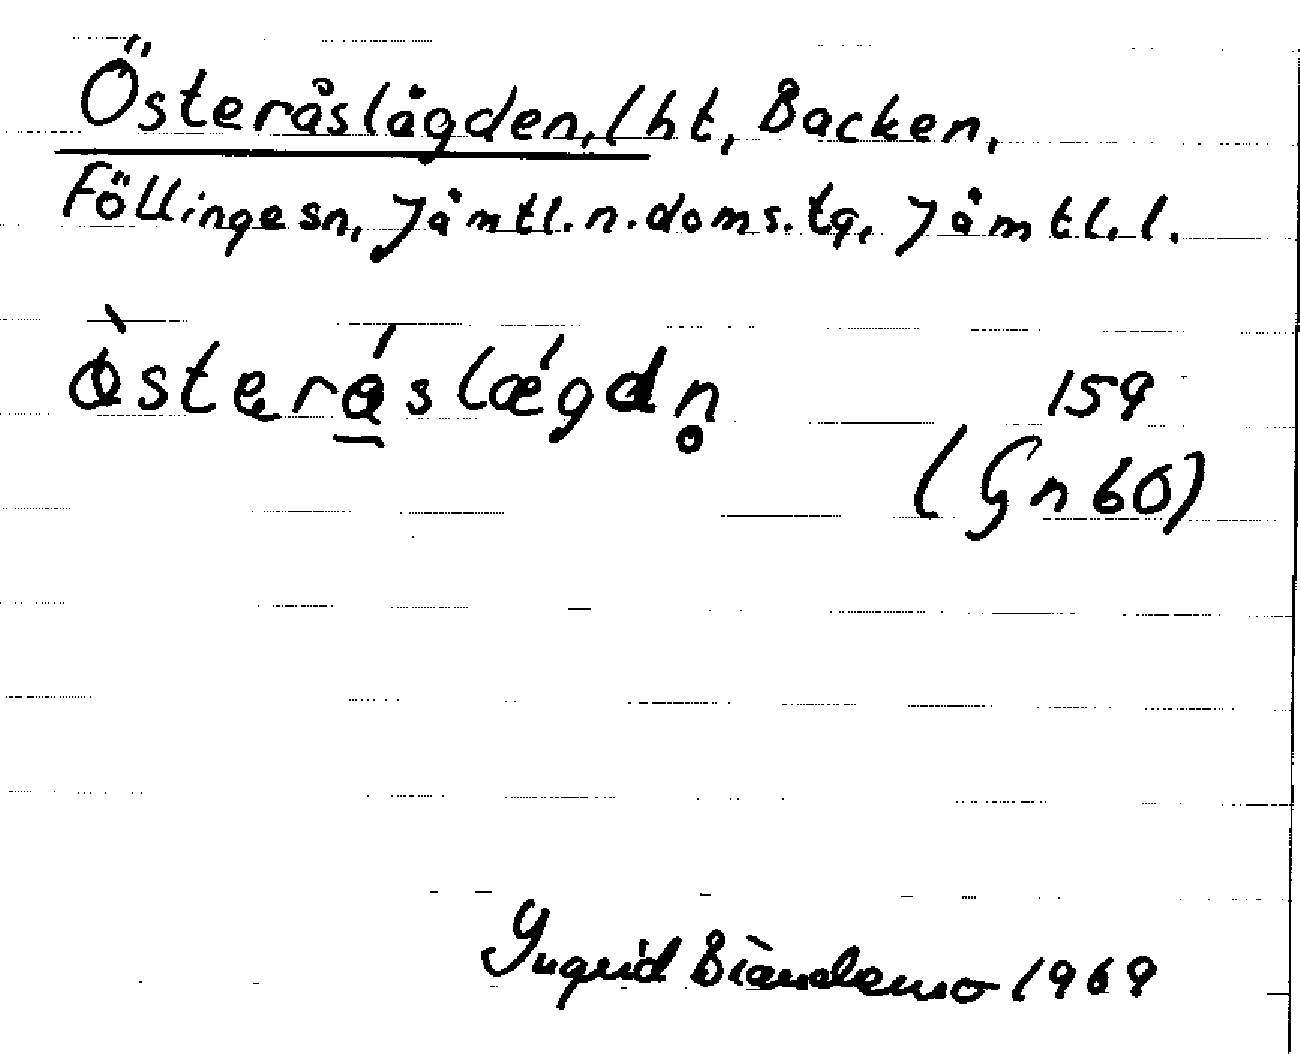 Österåslägden, lht, Backen,
Föllinge sn, Jämtl. n. doms. tg, Jämtl. l.
ø̀sterás lǽgdn̥ 159
(Gn 60)
Ingrid 1969